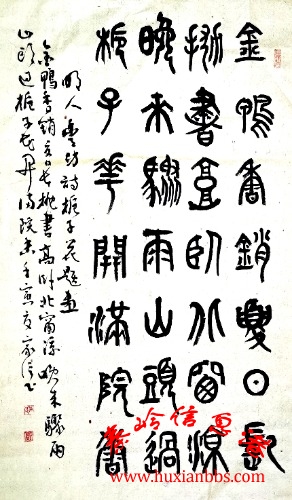 金鴨香銷夏日長
抛書高臥北窗涼
晚来驟雨山頭過
梔子華開滿院香
明人豐坊詩梔子花題畫
金鴨香銷夏日長抛書高臥北窗涼晚来驟雨
山頭過梔子花開滿院香壬寅
www.huxianbbs.com